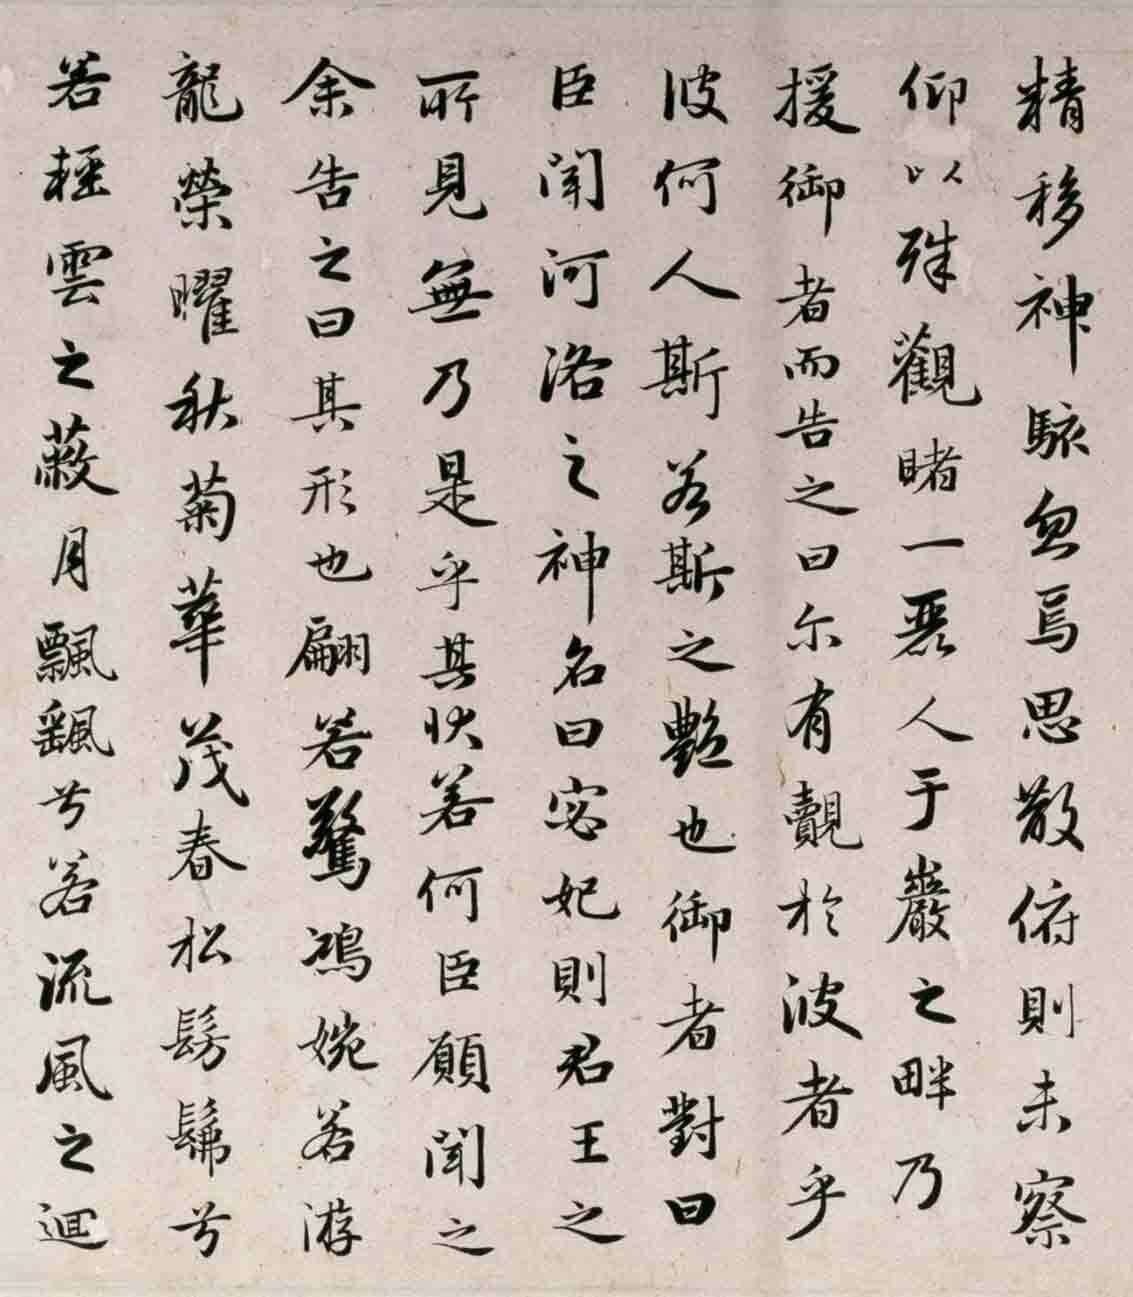 精移神駭忽焉思散俯則未察
仰以殊觀睹一麗人于巖之畔乃
援御者而告之曰尔有覿於彼者乎
彼何人斯若斯之艷也御者對曰
臣聞河洛之神名曰宓妃則君王之
所見無乃是乎其狀若何臣願聞之
余告之曰其形也翩若驚鴻婉若游
龍榮曜秋菊華茂春松髣髴兮
若輕雲之蔽月飄颻兮若流風之迴